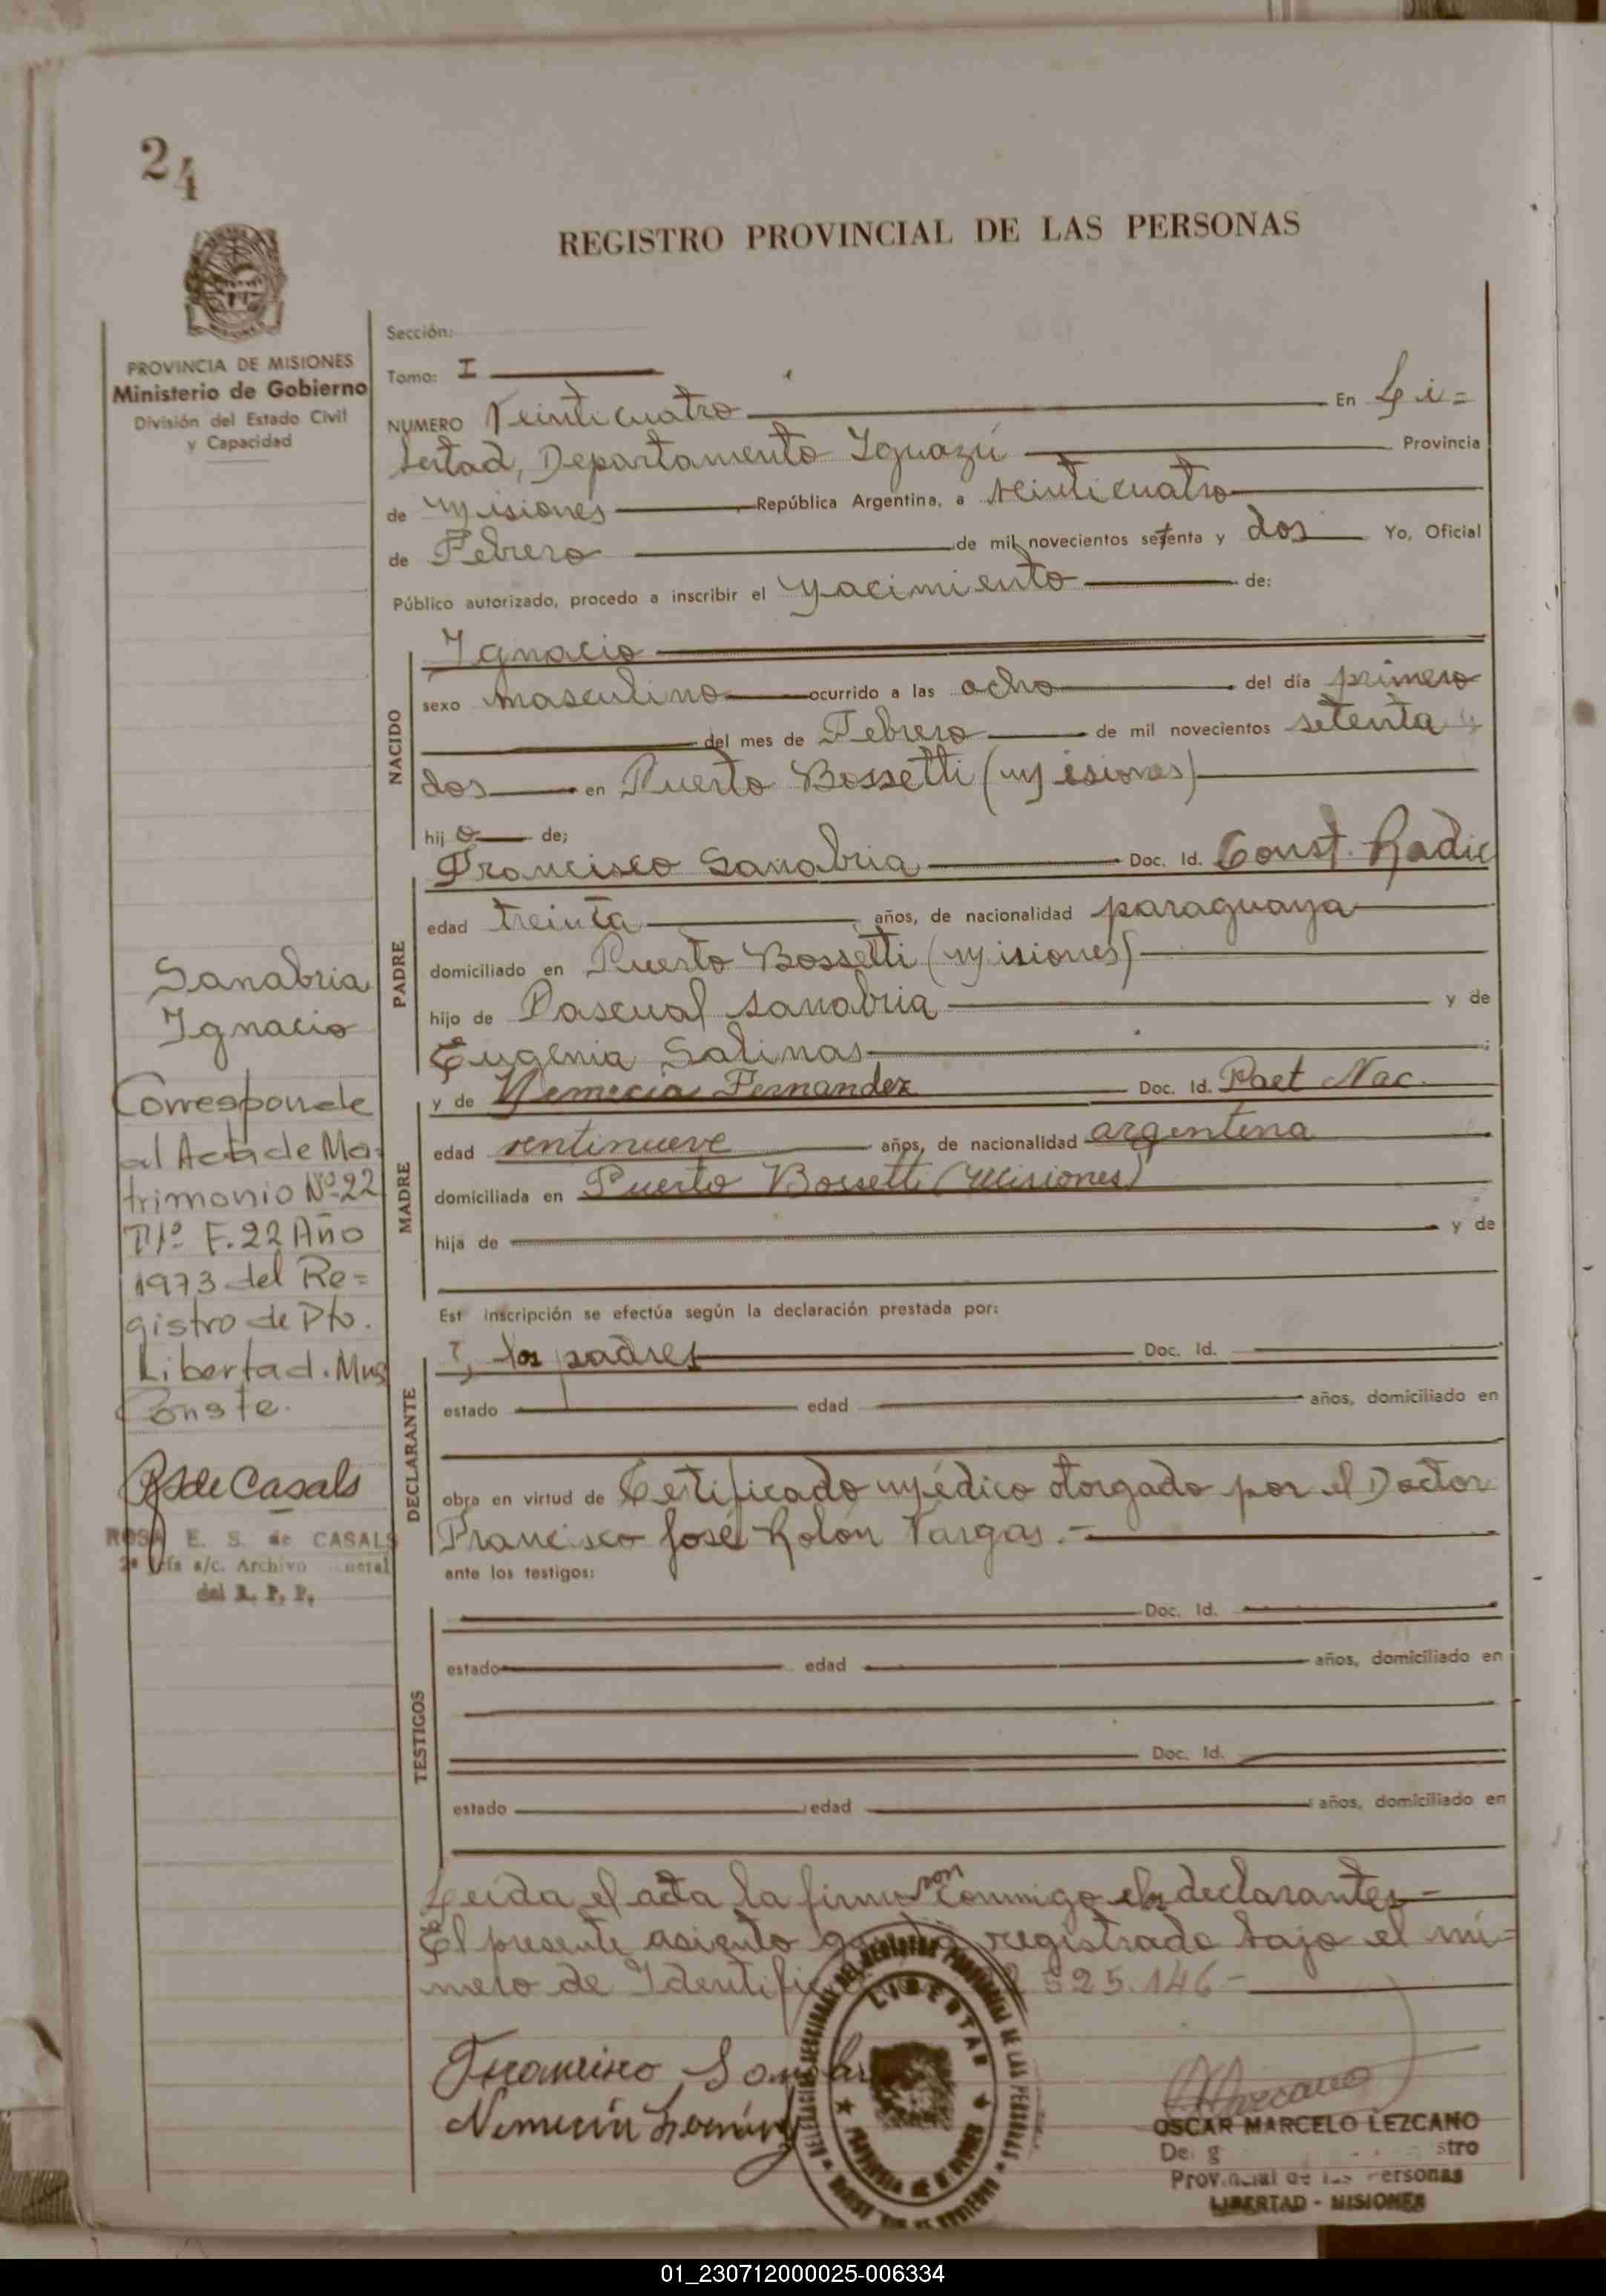 24
REGISTRO PROVINCIAL DE LAS PERSONAS
PROVINCIA DE MISIONES
Ministerio de Gobierno
División del Estado Civil
y Capacidad
Sección:
Tomo: I
NUMERO Veinticuatro En Li=
bertad, Departamento Iguazú Provincia
de Misiones República Argentina, a veinticuatro
de Febrero de mil novecientos setenta y dos Yo, Oficial
Público autorizado, procedo a inscribir el nacimiento de:
NACIDO
Ignacio
sexo masculino ocurrido a las ocho del día primero
del mes de Febrero de mil novecientos setenta y
dos en Puerto Bossetti (Misiones)
hij o de;
PADRE
Francisco Sanabria Doc. Id. Const. Radic
edad treinta años, de nacionalidad paraguaya
domiciliado en Puerto Bossetti (Misiones)
hijo de Pascual Sanabria y de
Eugenia Salinas
MADRE
y de Nemecia Fernandez Doc. Id. Part Nac.
edad ventinueve años, de nacionalidad argentina
domiciliada en Puerto Bossetti (Misiones)
hija de y de
Est inscripción se efectúa según la declaración prestada por:
DECLARANTE
los padres Doc. Id.
estado edad años, domiciliado en
obra en virtud de Certificado médico otorgado por el Doctor
Francisco José Rolón Vargas.-
ante los testigos:
TESTIGOS
Doc. Id.
estado edad años, domiciliado en
Doc. Id.
estado edad años, domiciliado en
Leida el acta la firman conmigo los declarantes-
El presente asiento registrado bajo el nú=
mero de 525.146-
Francisco
OSCAR MARCELO LEZCANO
Provincial de las Personas
LIBERTAD - MISIONES
LIBERTAD
Sanabria
Ignacio
Corresponde
al Acta de Ma-
trimonio Nº 22
Tº 1º F. 22 Año
1973 del Re=
gistro de Pto.
Libertad. Mnes
Conste.
RSdeCasals
ROSA E. S. de CASALS
2ª Jefa a/c. Archivo General
del R. P. P.
01_230712000025-006334